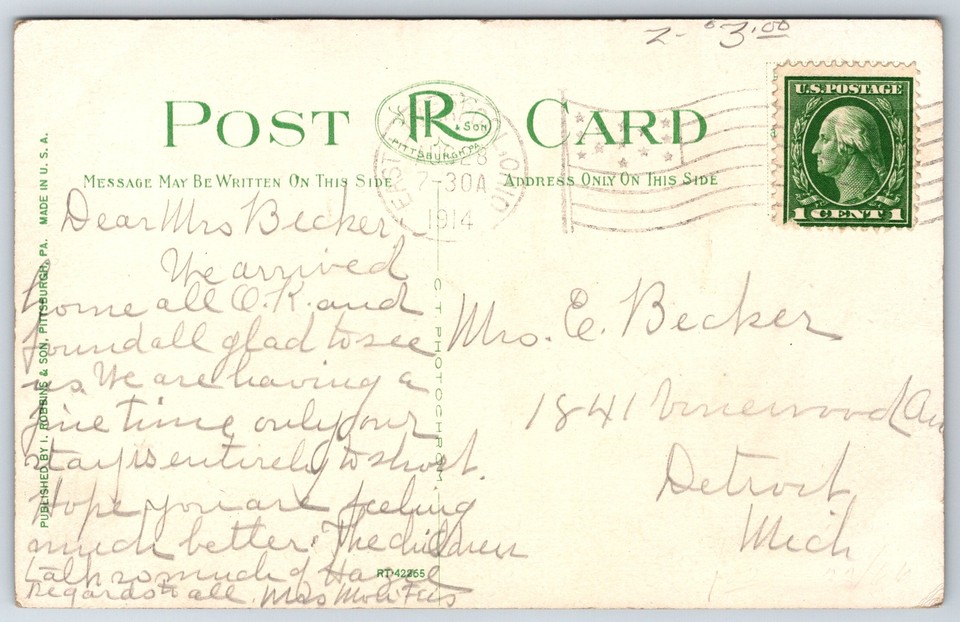 2- $3.00
U.S. POSTAGE
1 CENT 1
POST CARD
R
& SON
PITTSBURGH, PA.
OHIO
28
7-30A
1914
MESSAGE MAY BE WRITTEN ON THIS SIDE
ADDRESS ONLY ON THIS SIDE
PUBLISHED BY I. ROBBINS & SON, PITTSBURGH, PA. MADE IN U. S. A.
C T PHOTOCHROM
Dear Mrs Becker,
We arrived
home all O.K. and
found all glad to see
us. We are having a
fine time only our
stay is entirely to short.
Hope you are feeling
much better. The children
talk so much of
regards to all. Mrs
R-42265
Mrs. E. Becker
1841 Vinewood Av
Detroit
Mich